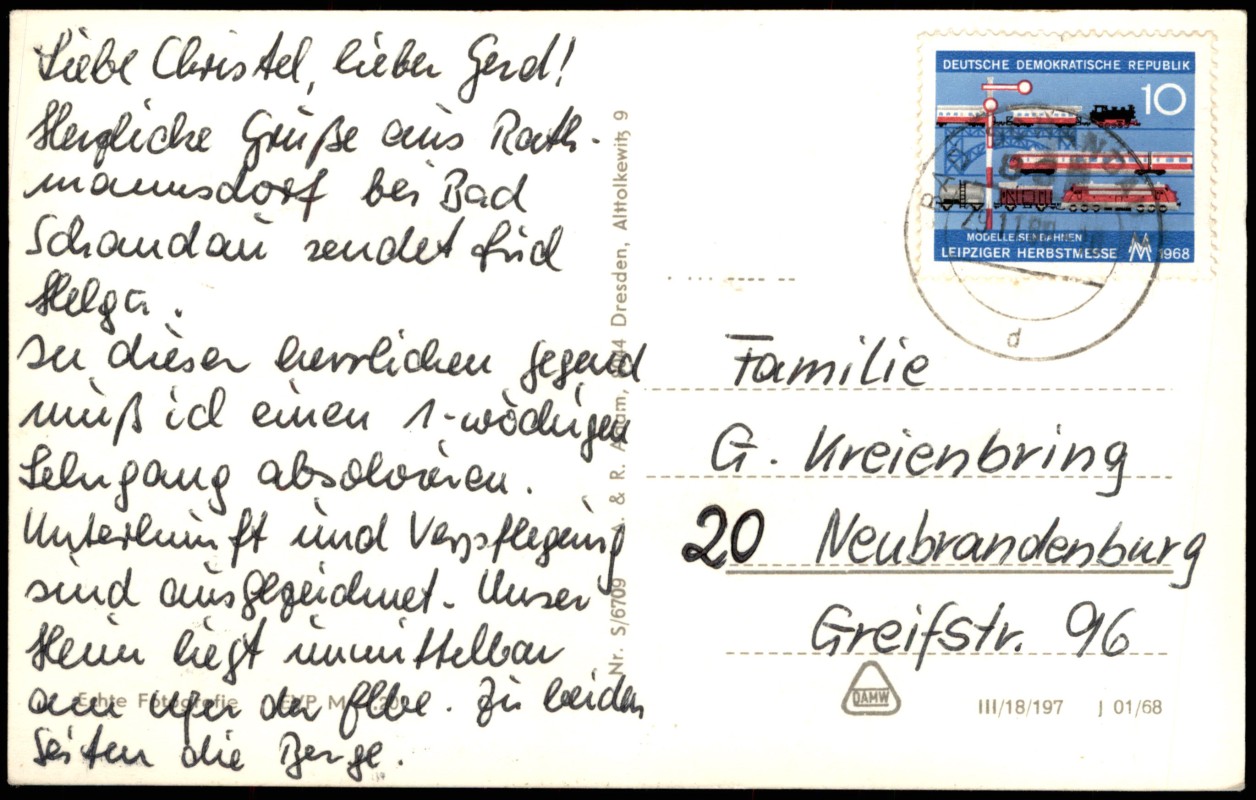 Liebe Christel, lieber Gerd!
Herzliche Grüße aus Rath-
mannsdorf bei Bad
Schandau sendet Euch
Helga.
In dieser herrlichen Gegend
muß ich einen 1-wöchigen
Lehrgang absolvieren.
Unterkunft und Verpflegung
sind ausgezeichnet. Unser
Heim liegt unmittelbar
am Ufer der Elbe. Zu beiden
Seiten die Berge.
Echte Fotografie EVP M
Nr. S/6709 & R. Dresden, Alttolkewitz 9
DEUTSCHE DEMOKRATISCHE REPUBLIK
10
MODELLEISENBAHNEN
LEIPZIGER HERBSTMESSE MM 1968
d
Familie
G. Kreienbring
20 Neubrandenburg
Greifstr. 96
DAMW
III/18/197 J 01/68